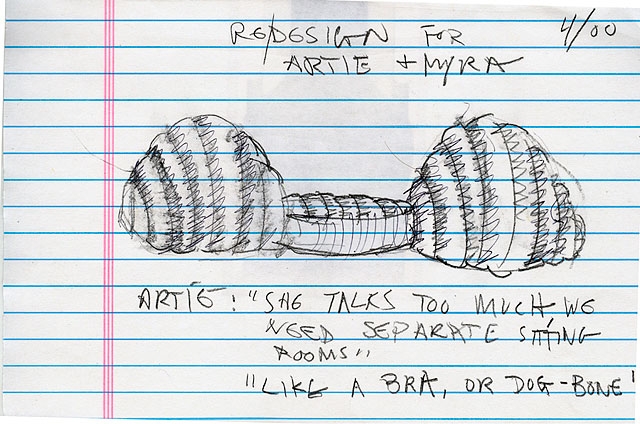 RE/DESIGN FOR 4/00
ARTIE + MYRA
ARTIE: "SHE TALKS TOO MUCH, WE
NEED SEPARATE SITTING
ROOMS"
"LIKE A BRA, OR DOG-BONE"